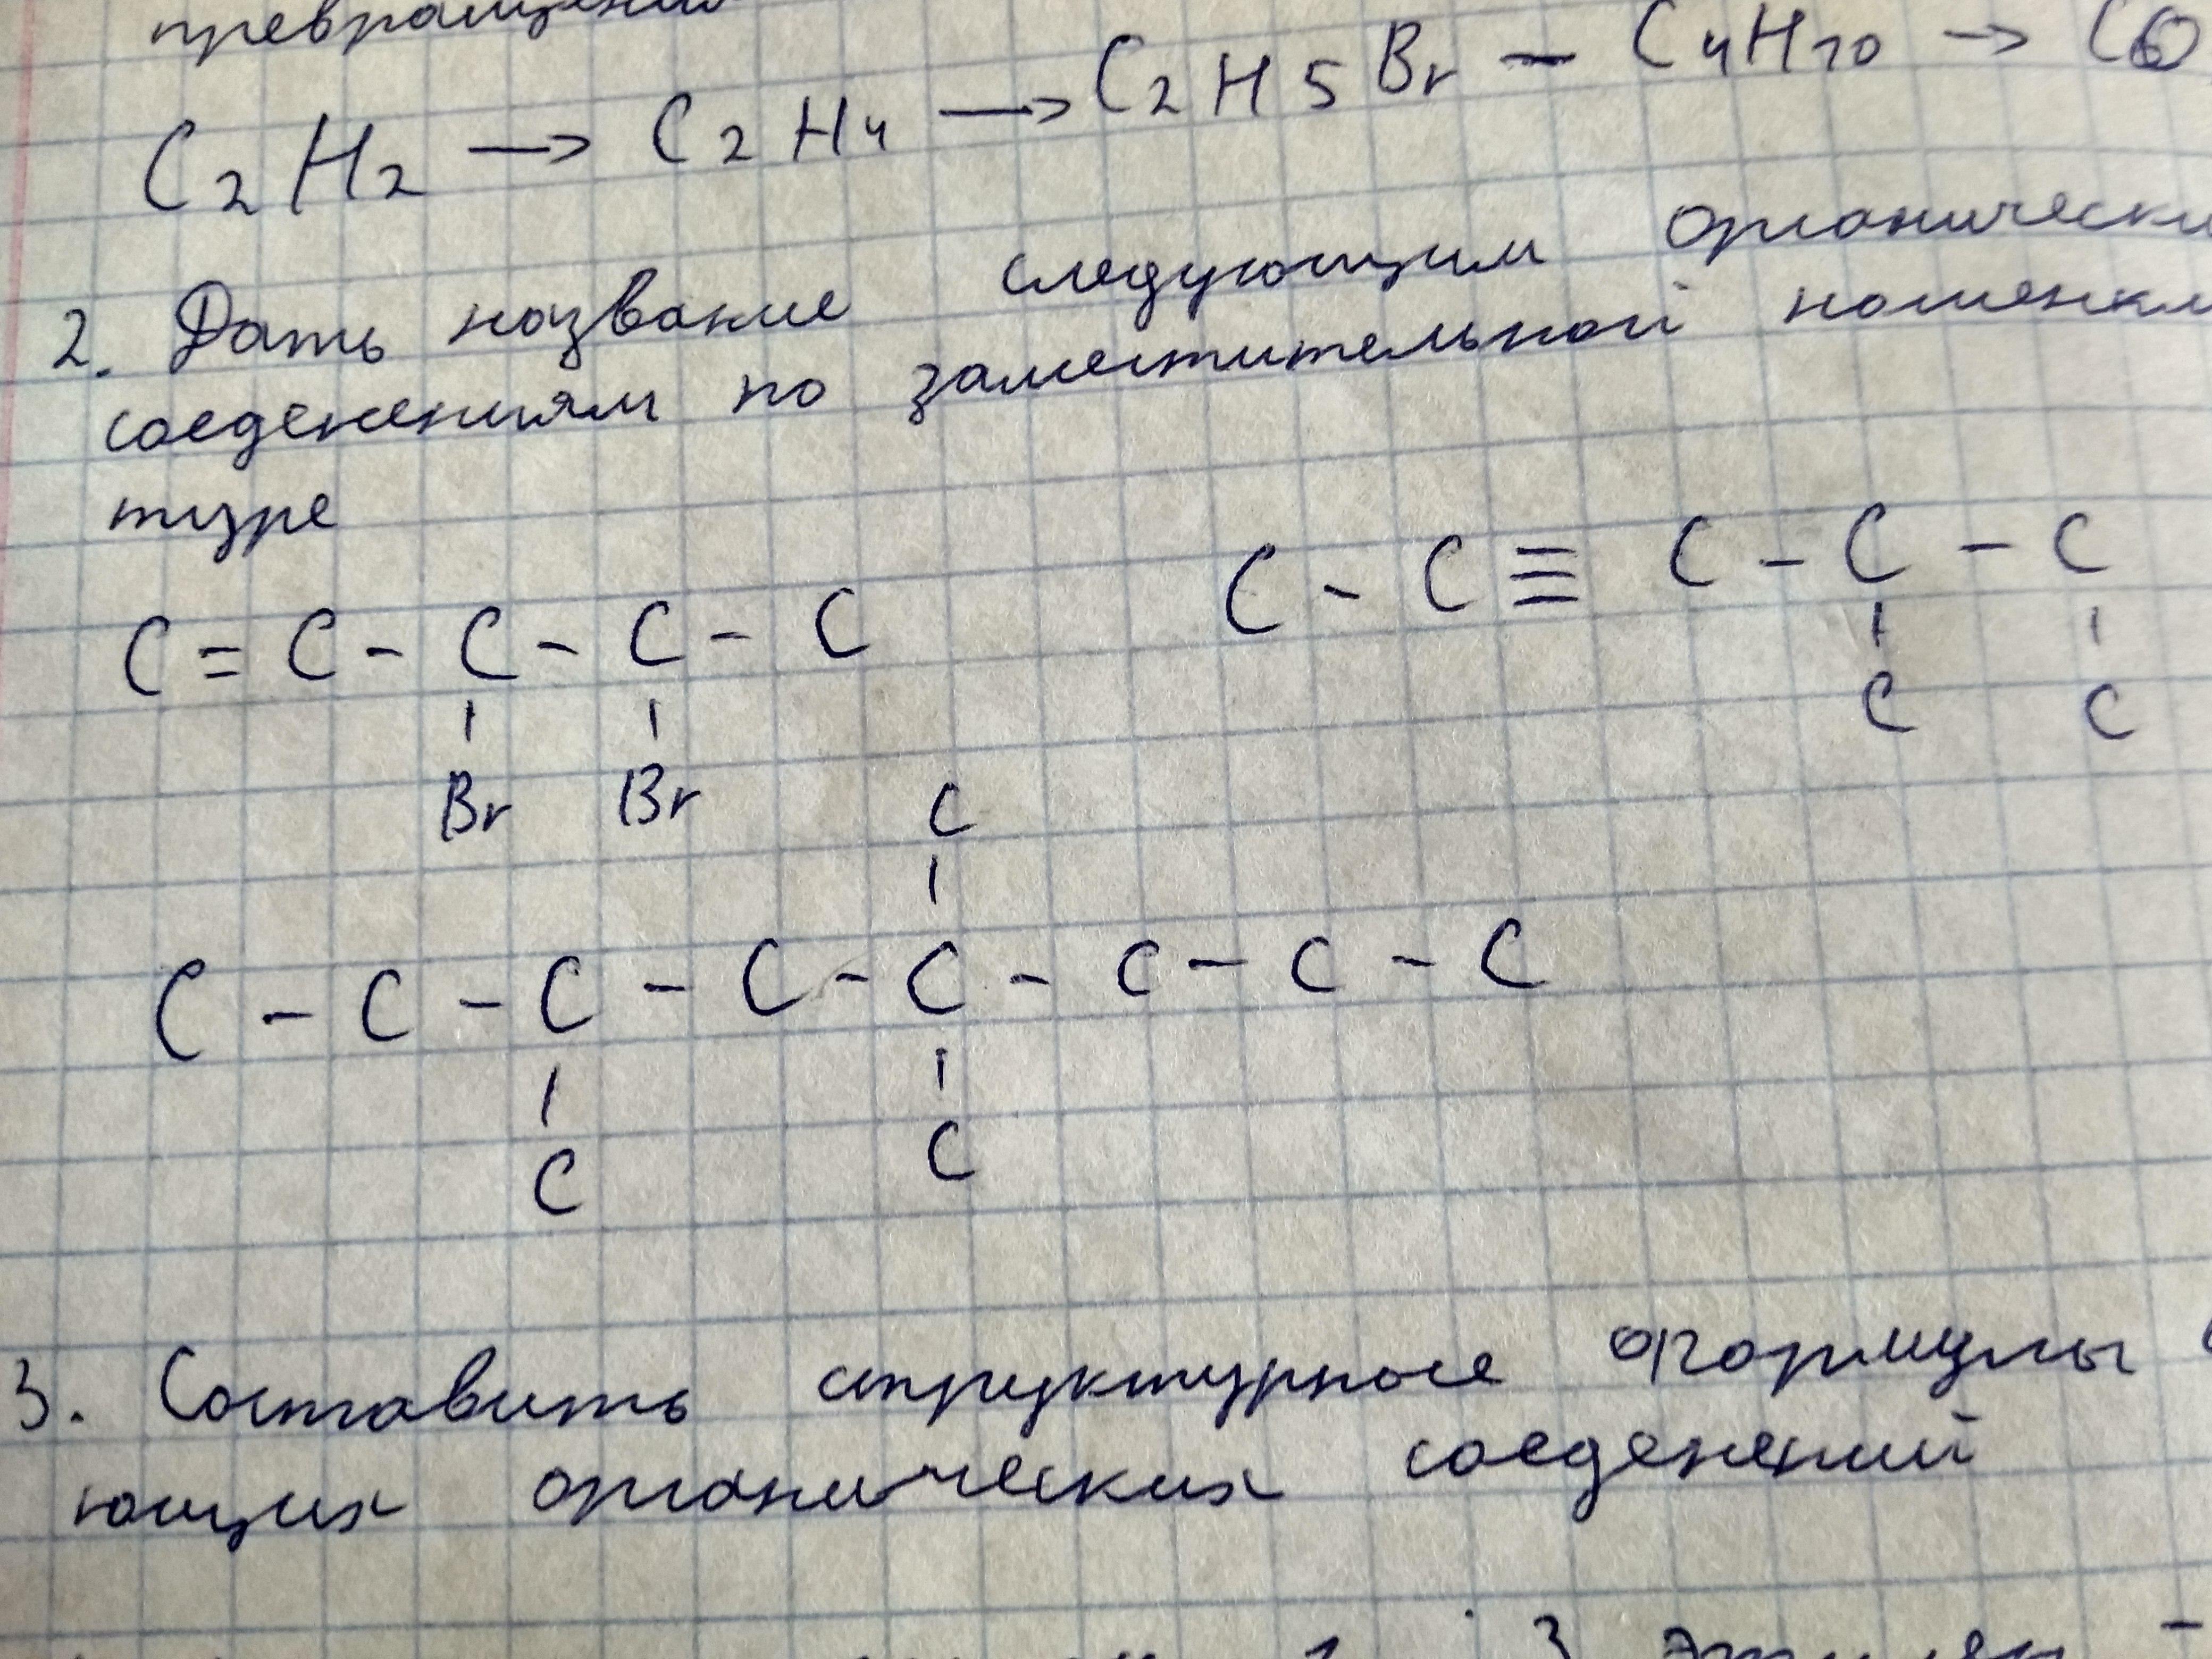 превращения
C2H2 → C2H4 → C2H5Br — C4H10 → CO
2. Дать название следующим органически
соеденениям по заместительной номенкл
туре
C = C - C - C - C
Br Br
C - C ≡ C - C - C
C C
C
C - C - C - C - C - C - C - C
C C
3. Составить структурное формулы
ющих органических соеденений